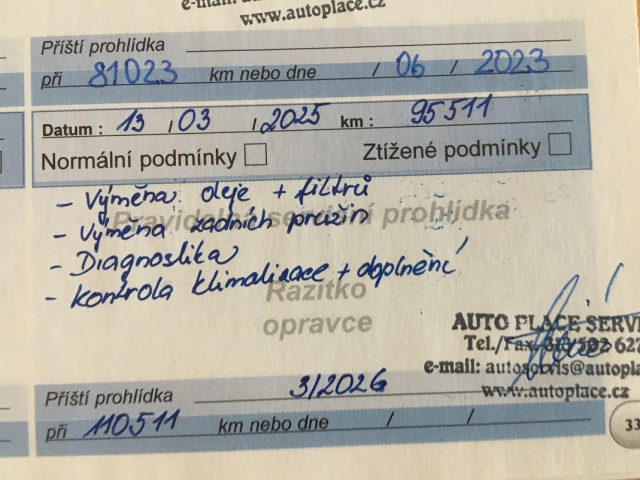 e-mail:
www.autoplace.cz
Příští prohlídka
při 81023 km nebo dne / 06 / 2023
Datum : 13 / 03 / 2025 km : 95 511
Normální podmínky Ztížené podmínky
- Výměna oleje + filtrů
Pravidelná servisní prohlídka
- Výměna zadních pružin
- Diagnostika
- Kontrola klimatizace + doplnění
Razítko
opravce
AUTO PLACE SERVI
Tel./Fax 502 627
e-mail: @autopla
www.autoplace.cz
Příští prohlídka 3/2026
při 110511 km nebo dne / /
33